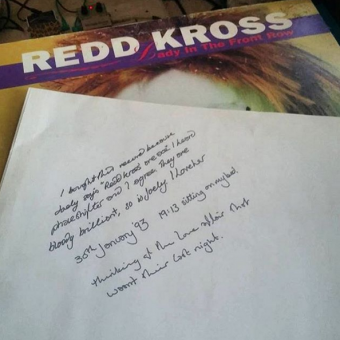 REDD KROSS
Lady In The Front Row
I bought this record because
says "Redd Kross are ace I heard
phaseshifter and I agree. They are
bloody brilliant, so is Joely
30th January '93 19:13 sitting on my bed
thinking of the love affair that
wasn't their last night.